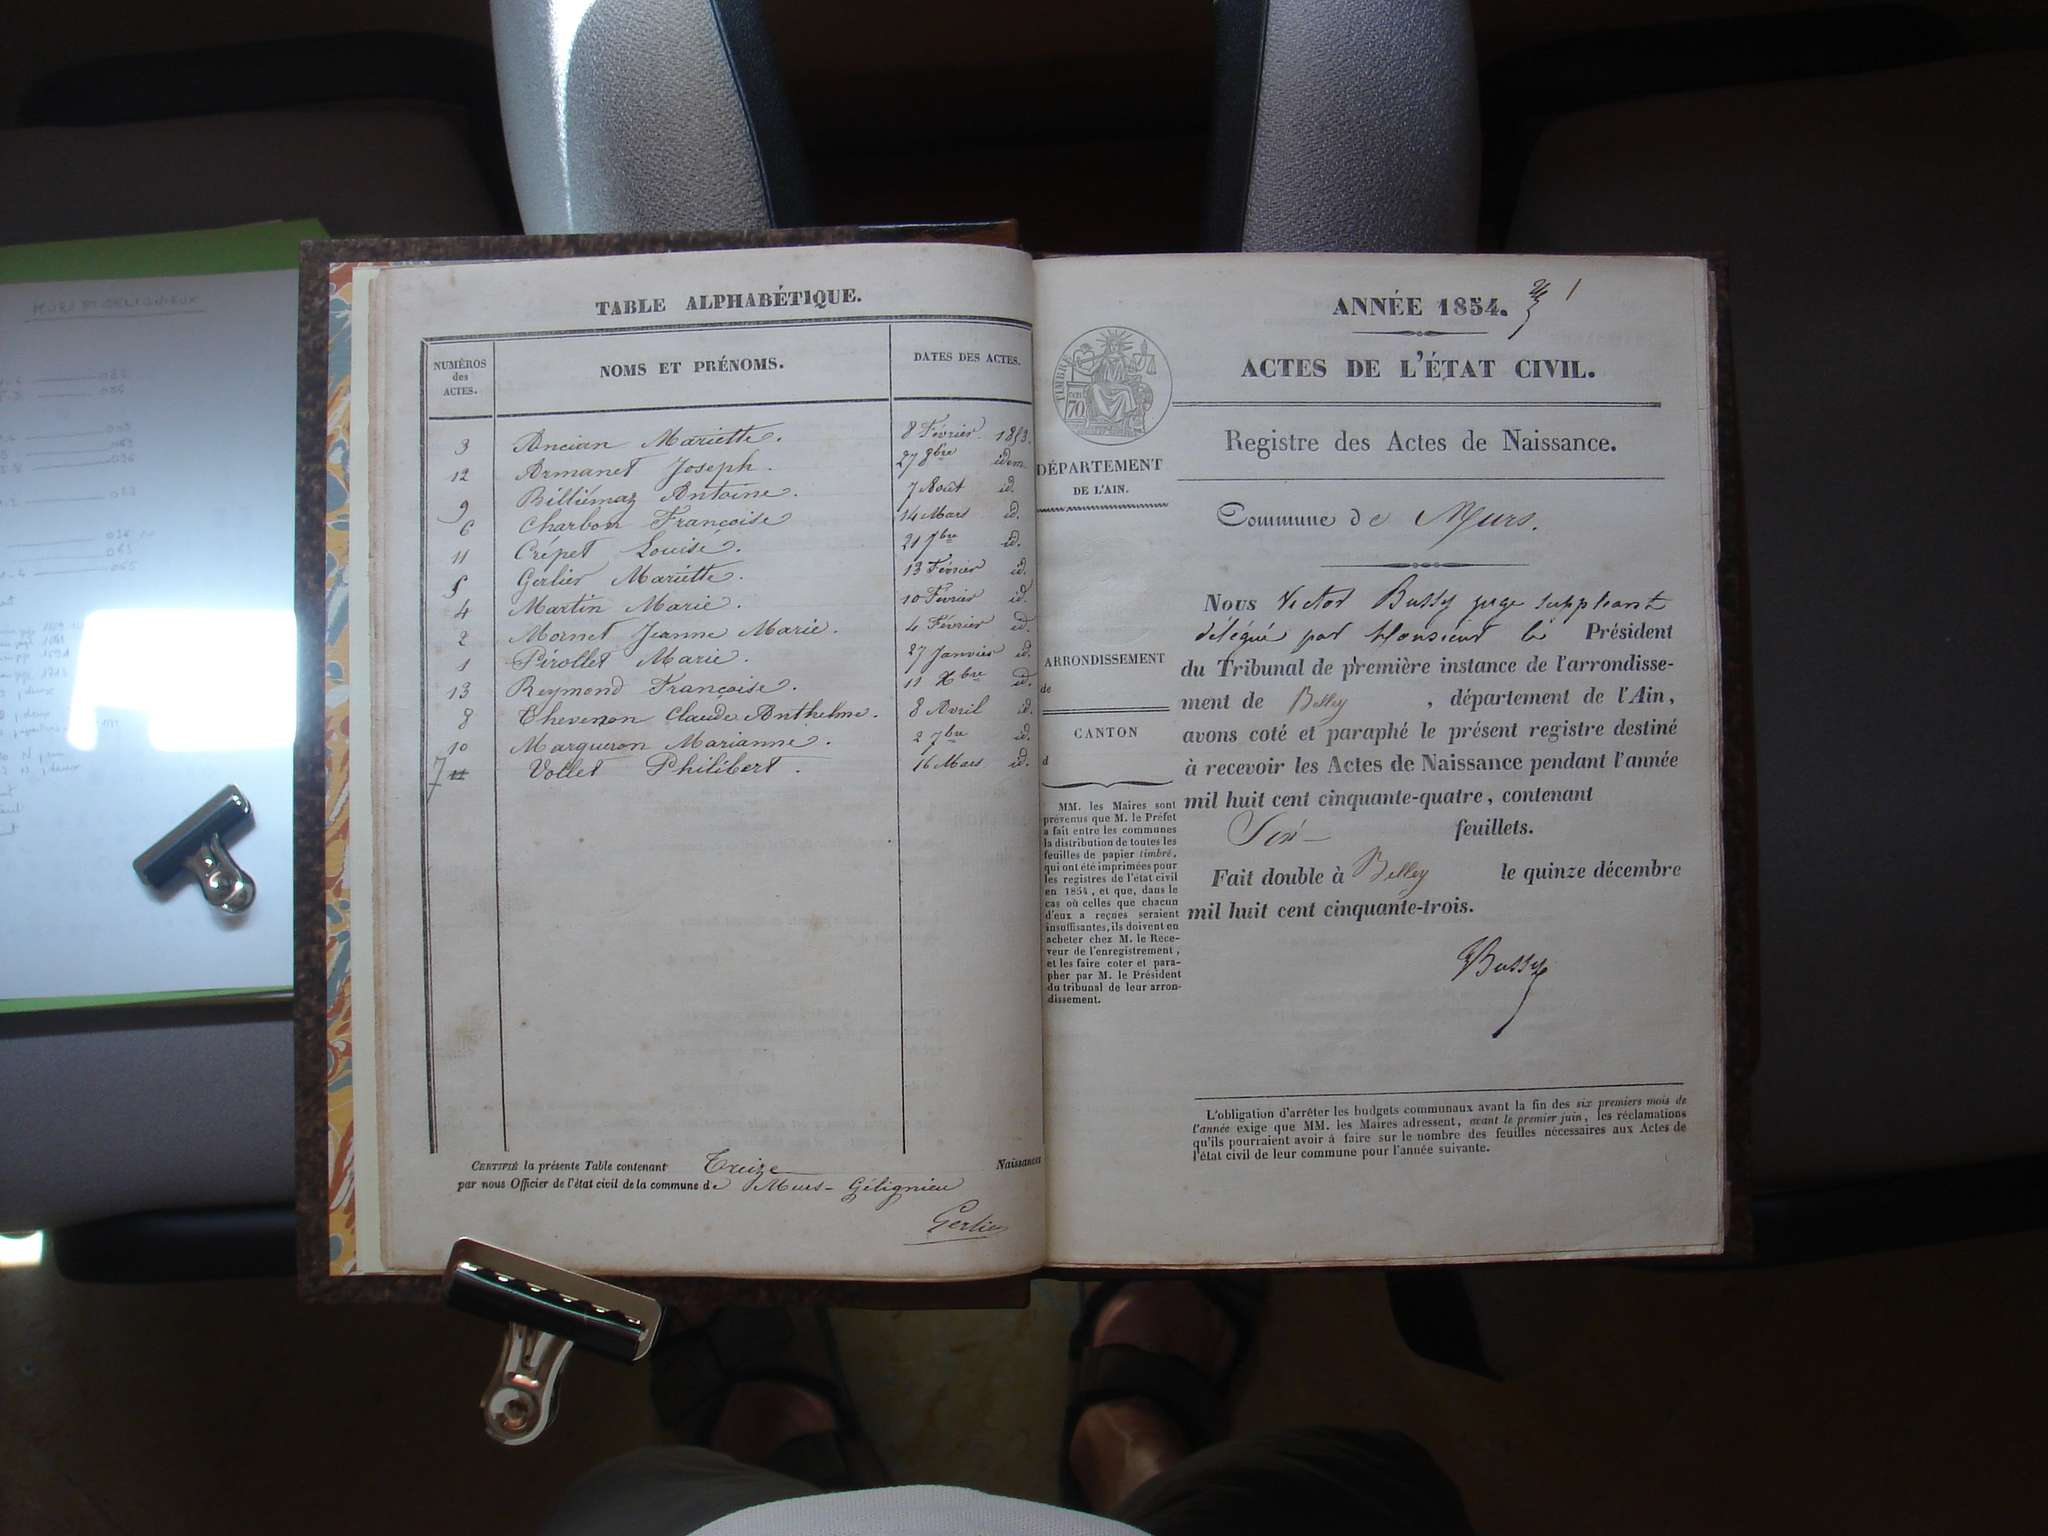 MURS ET GELIGNIEUX
TABLE ALPHABÉTIQUE.
NUMÉROS des ACTES.
NOMS ET PRÉNOMS.
DATES DES ACTES.
3 Ancian Mariette. 8 Février 1853.
12 Armanet Joseph. 27 9bre idem
9 Billiémaz Antoine. 7 Août id.
6 Charbon Françoise 14 Mars id.
11 Crépet Louise. 21 7bre id.
5 Gerlier Mariette. 13 Février id.
4 Martin Marie. 10 Février id.
2 Mornet Jeanne Marie. 4 Février id.
1 Pirollet Marie. 27 Janvier id.
13 Reymond Françoise. 11 Xbre id.
8 Thevenon Claude Anthelme. 8 Avril id.
10 Margueron Marianne. 2 7bre id.
7 Vollet Philibert. 16 Mars id.
CERTIFIÉ la présente Table contenant Treize Naissances
par nous Officier de l'état civil de la commune de Murs-Gélignieu
Gerlier
ANNÉE 1854. 1
ACTES DE L'ÉTAT CIVIL.
Registre des Actes de Naissance.
TIMBRE
70
DÉPARTEMENT
DE L'AIN.
Commune de Murs.
Nous Victor Bussy juge suppléant
délégué par Monsieur le Président
du Tribunal de première instance de l'arrondisse-
ment de Belley, département de l'Ain,
avons coté et paraphé le présent registre destiné
à recevoir les Actes de Naissance pendant l'année
mil huit cent cinquante-quatre, contenant
Six feuillets.
Fait double à Belley le quinze décembre
mil huit cent cinquante-trois.
Bussy
ARRONDISSEMENT
de
CANTON
d
MM. les Maires sont
prévenus que M. le Préfet
a fait entre les communes
la distribution de toutes les
feuilles de papier timbré,
qui ont été imprimées pour
les registres de l'état civil
en 1854, et que, dans le
cas où celles que chacun
d'eux a reçues seraient
insuffisantes, ils doivent en
acheter chez M. le Rece-
veur de l'enregistrement,
et les faire coter et para-
pher par M. le Président
du tribunal de leur arron-
dissement.
L'obligation d'arrêter les budgets communaux avant la fin des six premiers mois de
l'année exige que MM. les Maires adressent, avant le premier juin, les réclamations
qu'ils pourraient avoir à faire sur le nombre des feuilles nécessaires aux Actes de
l'état civil de leur commune pour l'année suivante.